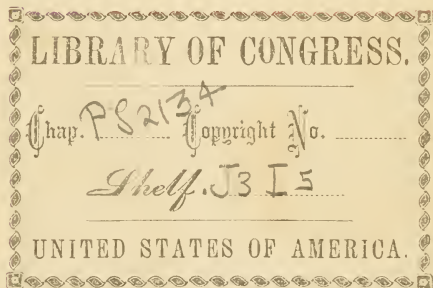 LIBRARY OF CONGRESS.
Chap. PS2134 Copyright No.
Shelf. J3 I5
UNITED STATES OF AMERICA.